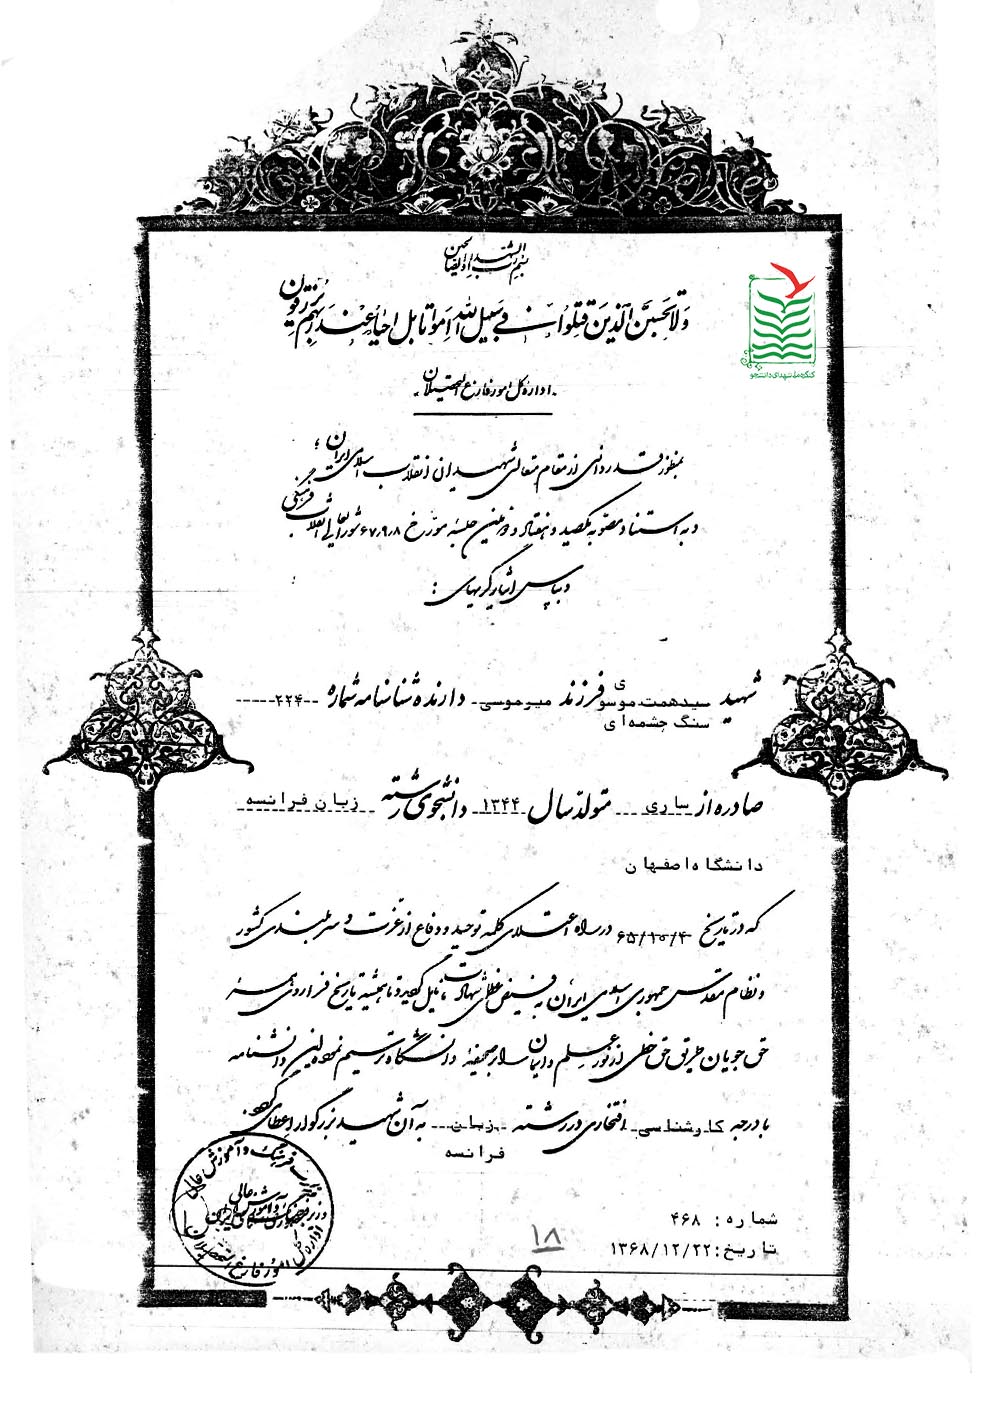 بسم رب الشهداء والصالحین
ولا تحسبن الذین قتلوا فی سبیل الله امواتا بل احیاء عند ربهم یرزقون
کنگره ملی شهدای دانشجو
اداره کل امور فارغ التحصیلان
بمنظور قدردانی از مقام متعالی شهیدان انقلاب اسلامی ایران ؛
و به استناد مصوبه یکصد و هفتاد و دومین جلسه مورخ ۶۷٫۹٫۸ شورایعالی انقلاب فرهنگی
و بپاس ایثارگریهای :
شهید سیدهمت موسوی فرزند میرموسی دارنده شناسنامه شماره ۲۲۴
سنگ چشمه ای
صادره از ساری متولد سال ۱۳۴۴ دانشجوی رشته زبان فرانسه
دانشگاه اصفهان
که در تاریخ ۶۵/۱۰/۴ در راه اعتلای کلمه توحید و دفاع از عزت و سربلندی کشور
و نظام مقدس جمهوری اسلامی ایران به فیض عظمای شهادت نایل گردید و تا همیشه تاریخ فرا روی همه
حق جویان طریق حق خطی از نور علم و ایمان را بر صحیفه دانشگاه ترسیم نمود این دانشنامه
با درجه کارشناسی افتخاری در رشته زبان به آن شهید بزرگوار اعطا میگردد.
فرانسه
وزارت فرهنگ و آموزش عالی
اداره کل امور فارغ التحصیلان
شماره : ۴۶۸
تاریخ: ۱۳۶۸/۱۲/۲۲
۱۸